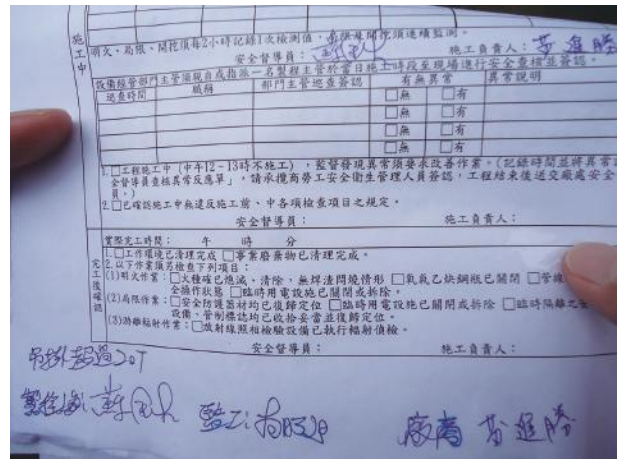 施工中
明火、局限、開挖須每2小時記錄1次檢測值，局限及開挖須連續監測。
安全督導員： 施工負責人：黃進勝
設備經管部門主管須親自或指派一名製程主管於當日施工時段至現場進行安全查核並簽認。
巡查時間 職稱 部門主管巡查簽認 有無異常 異常說明
□無 □有
□無 □有
□無 □有
□無 □有
1.□工程施工中（中午12~13時不施工），監督發現異常須要求改善作業。(記錄時間並將異常
全督導員查核異常反應單」，請承攬商勞工安全衛生管理人員簽認，工程結束後送交廠處安全
員。)
2.□已確認施工中無違反施工前、中各項檢查項目之規定。
安全督導員： 施工負責人：
完工後確認
實際完工時間： 年 時 分
1.□工作環境已清理完成 □事業廢棄物已清理完成。
2.以下作業須另檢查下列項目：
(1)明火作業：□火種確已熄滅、清除，無焊渣悶燒情形 □氧氣乙炔鋼瓶已關閉 □管線
全操作狀態 □臨時用電設施已關閉或拆除。
(2)局限作業：□安全防護器材均已復歸定位 □臨時用電設施已關閉或拆除 □臨時隔離之
設備、管制標誌均已收拾妥當並復歸定位。
(3)游離輻射作業：□放射線照相檢驗設備已執行輻射偵檢。
安全督導員： 施工負責人：
吊掛超過20T
監工：
廠商 黃進勝